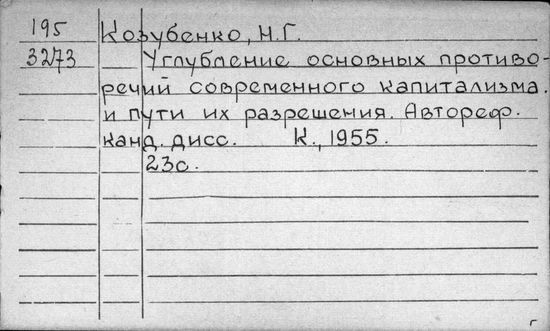 195 Козубенко, Н.Г.
3273 Углубление основных противо-
речий современного капитализма.
и пути их разрешения. Автореф.
канд. дисс. К., 1955.
23с.
г